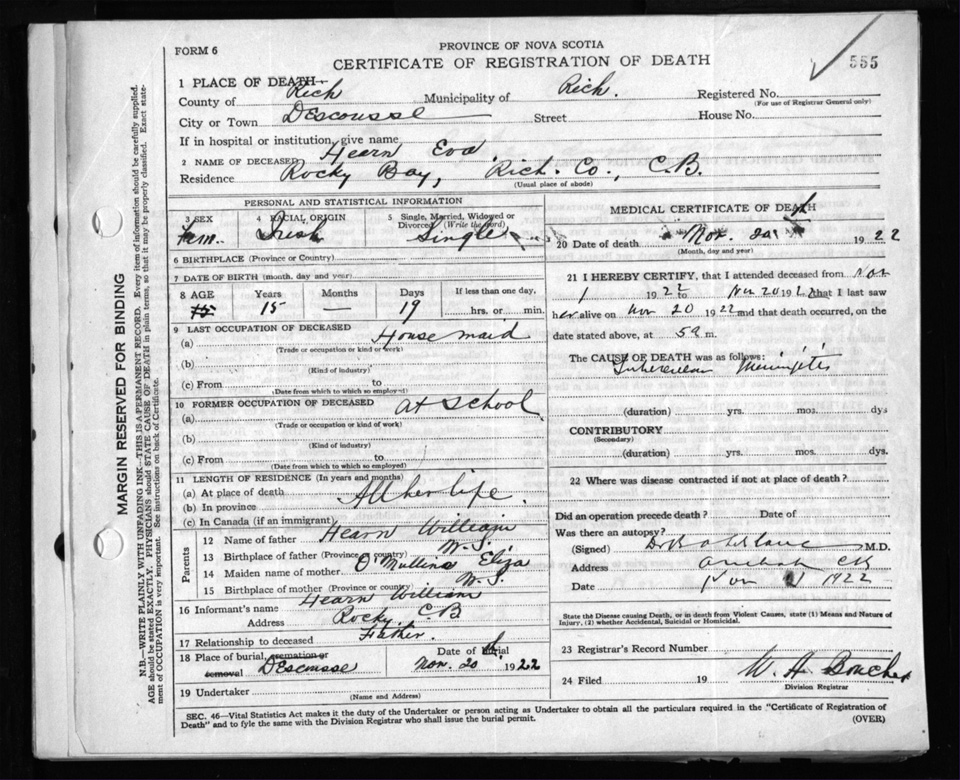 FORM 6
PROVINCE OF NOVA SCOTIA
CERTIFICATE OF REGISTRATION OF DEATH
555
1 PLACE OF DEATH—
County of Rich Municipality of Rich. Registered No.
(For use of Registrar General only)
City or Town Descousse Street House No.
If in hospital or institution, give name
2 NAME OF DECEASED Hearn Eva.
Residence Rocky Bay, Rich. Co., C.B.
(Usual place of abode)
PERSONAL AND STATISTICAL INFORMATION
3 SEX 4 RACIAL ORIGIN 5 Single, Married, Widowed or Divorced (Write the word)
Fem. Irish Single
6 BIRTHPLACE (Province or Country)
7 DATE OF BIRTH (month, day and year)
8 AGE Years Months Days If less than one day,
15 15 — 19 hrs. or min.
9 LAST OCCUPATION OF DECEASED
(a) House maid
(Trade or occupation or kind of work)
(b)
(Kind of industry)
(c) From to
(Date from which to which so employed)
10 FORMER OCCUPATION OF DECEASED
(a) At School
(Trade or occupation or kind of work)
(b)
(Kind of industry)
(c) From to
(Date from which to which so employed)
11 LENGTH OF RESIDENCE (In years and months)
(a) At place of death All her life.
(b) In province
(c) In Canada (if an immigrant)
Parents
12 Name of father Hearn William
13 Birthplace of father (Province or country) N.S.
14 Maiden name of mother O'Mullins Eliza
15 Birthplace of mother (Province or country) N.S.
16 Informant's name Hearn William
Address Rocky. C.B
17 Relationship to deceased Father.
18 Place of burial, cremation or removal Descousse Date of burial Nov. 20 1922
19 Undertaker
(Name and Address)
MEDICAL CERTIFICATE OF DEATH
20 Date of death Nov. 20 1922
(Month, day and year)
21 I HEREBY CERTIFY, that I attended deceased from Nov
1 1922 to Nov 20 1922 that I last saw
her alive on Nov 20 1922 and that death occurred, on the
date stated above, at 5a m.
The CAUSE OF DEATH was as follows:
Tubercular Meningitis
(duration) yrs. mos. dys
CONTRIBUTORY
(Secondary)
(duration) yrs. mos. dys.
22 Where was disease contracted if not at place of death?
Did an operation precede death? Date of
Was there an autopsy?
(Signed) M.D.
Address Arichat CB
Date Nov 1922
State the Disease causing Death, or in death from Violent Causes, state (1) Means and Nature of
Injury, (2) whether Accidental, Suicidal or Homicidal.
23 Registrar's Record Number
24 Filed 19 W. A. Boucher
Division Registrar
SEC. 46—Vital Statistics Act makes it the duty of the Undertaker or person acting as Undertaker to obtain all the particulars required in the "Certificate of Registration of
Death" and to fyle the same with the Division Registrar who shall issue the burial permit.
(OVER)
MARGIN RESERVED FOR BINDING
N.B.—WRITE PLAINLY WITH UNFADING INK—THIS IS A PERMANENT RECORD. Every item of information should be carefully supplied.
AGE should be stated EXACTLY. PHYSICIANS should STATE CAUSE OF DEATH in plain terms, so that it may be properly classified. Exact state-
ment of OCCUPATION is very important. See instructions on back of Certificate.